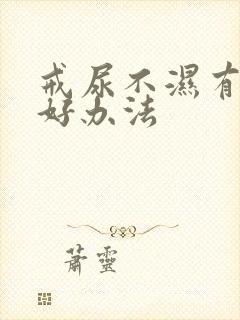 戒尿不濕有
好办法
蕭靈